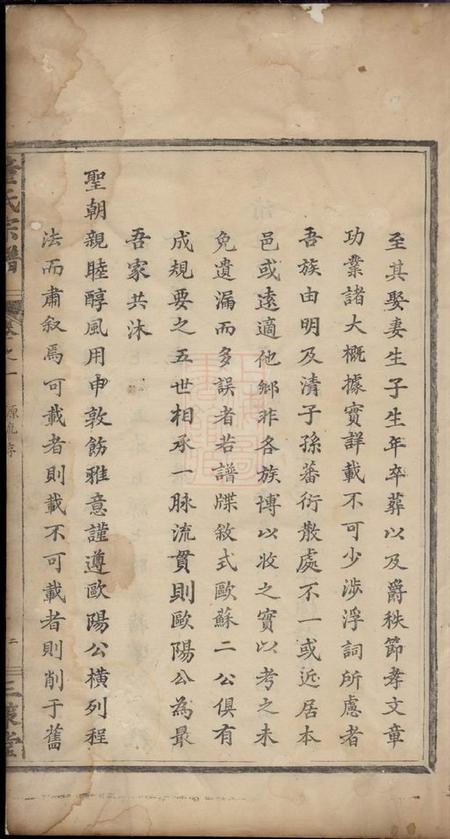 至其娶妻生子生年卒葬以及爵秩節孝文章
功業諸大概據實詳載不可少涉浮詞所慮者
吾族由明及清子孫蕃衍散處不一或近居本
邑或遠適他鄉非各族博以收之實以考之未
免遺漏而多誤者若譜牒敘式歐蘇二公俱有
成規要之五世相承一脉流貫則歐陽公為最
吾家共沐
聖朝親睦醇風用申敦飭雅意謹遵歐陽公橫列程
法而肅叙焉可載者則載不可載者則削于舊
氏宗譜
卷之一
源流序
二
三槐堂